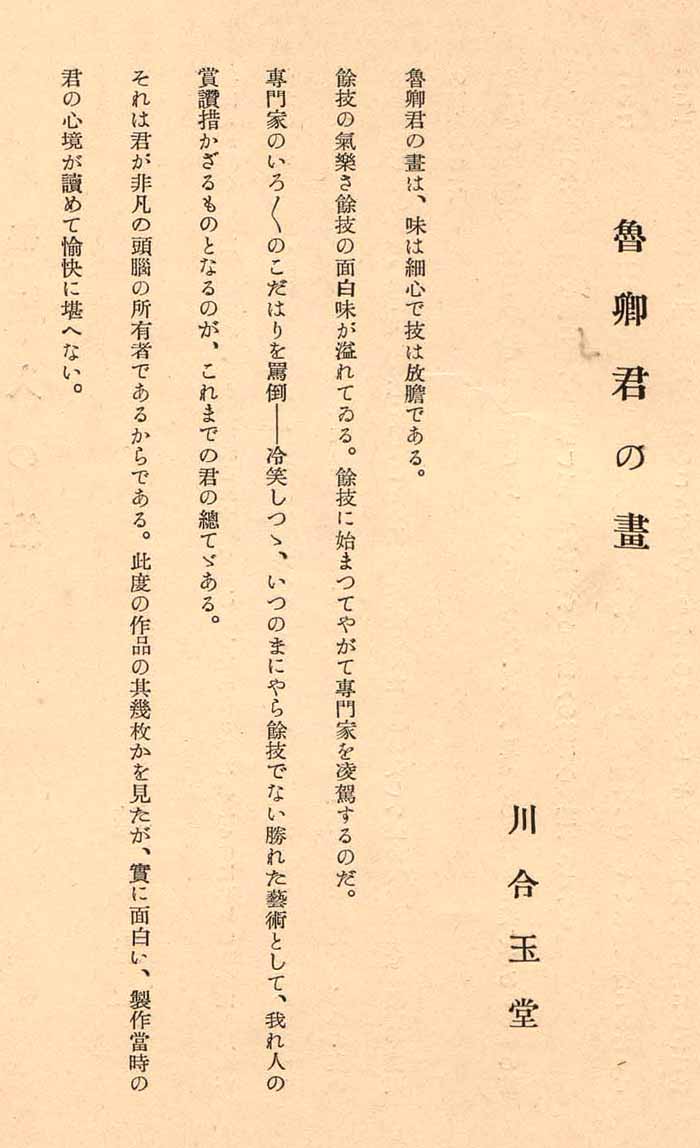 魯卿君の畫
川合玉堂
魯卿君の畫は、味は細心で技は放膽である。
餘技の氣樂さ餘技の面白味が溢れてゐる。餘技に始まつてやがて專門家を凌駕するのだ。
專門家のいろ〳〵のこだはりを罵倒――冷笑しつゝ、いつのまにやら餘技でない勝れた藝術として、我れ人の
賞讚措かざるものとなるのが、これまでの君の總てゞある。
それは君が非凡の頭腦の所有者であるからである。此度の作品の其幾枚かを見たが、實に面白い、製作當時の
君の心境が讀めて愉快に堪へない。